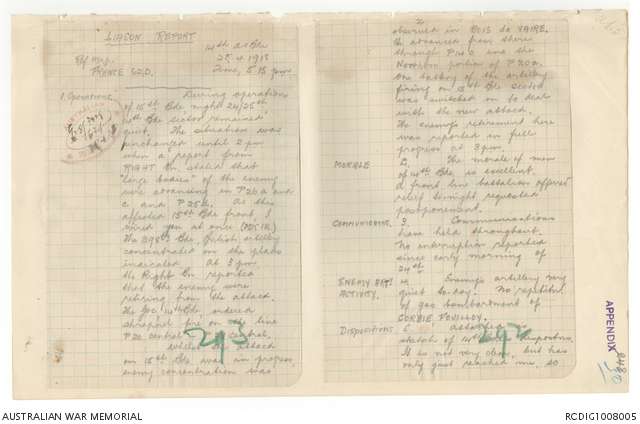 LIAISON REPORT
14th A I Bde
25.4.1918
Ref Map
FRANCE 62.D.
Time, 5.15 pm
1. Operations
During operations
of 15th Bde night 24/25th
14th Bde sector remained
quiet. The situation was
unchanged until 2 pm
when a report from
RIGHT Bn. stated that
"large bodies" of the enemy
were advancing in P26 a and
c and P25d. As this
affected 15th Bde front, I
wired you at once
The 298th Bde, British artillery
concentrated on the places
indicated. At 3 pm
the Right Bn reported
that the enemy were
retiring from the attack.
The GOC 14th Bde. ordered
shrapnel fire on the line
P20 central central.
whilst attack
on 15th Bde was in progress
enemy concentration was
243
2
observed in BOIS de VAIRE.
He advanced from there
through P14c and the
Northern portion of P20a.
One battery of the artillery
firing on 15th Bde sector
was switched on to deal
with the new attack.
The enemy's retirement here
was reported in full
progress at 3 pm.
MORALE
2. The morale of men
of 14th Bde. is excellent.
A front line battalion offered
relief tonight requested
postponement.
COMMUNICATNS.
3. Communications
have held throughout.
No interruption reported
since early morning of
24th
ENEMY ARTY
ACTIVITY.
4. Enemy's artillery very
quiet to-day. No repetition
of gas bombardment of
CORBIE FOUILLOY.
DISPOSITIONS
5. attached
sketch of 14th dispositions.
It is not very clear, but has
only just reached me, so
242
APPENDIX
AUSTRALIAN WAR MEMORIAL
RCDIG1008005